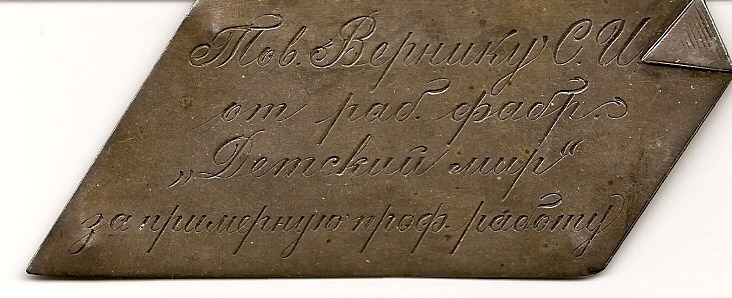 Тов. Вернику С. И.
от раб. фабр.
„Детский мир“
за примерную проф. работу